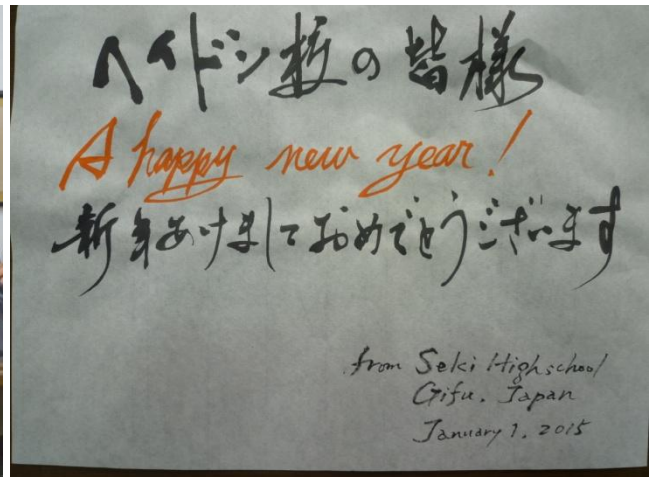 ヘイドン校の皆様
A happy new year!
新年あけましておめでとうございます
from Seki Highschool
Gifu. Japan
January 1. 2015